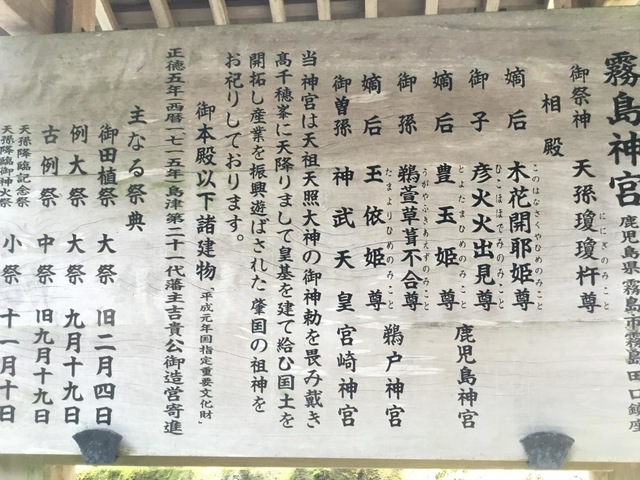 霧島神宮 鹿児島県霧島市霧島田口鎮座
御祭神 天孫瓊瓊杵尊
ににぎのみこと
相殿
嫡后 木花開耶姫尊
このはなさくやひめのみこと
御子 彦火火出見尊 鹿児島神宮
ひこほほでみのみこと
嫡后 豊玉姫尊
とよたまひめのみこと
御孫 鵜萱草葺不合尊 鵜戸神宮
うがやふきあえずのみこと
嫡后 玉依姫尊
たまよりひめのみこと
御曽孫 神武天皇 宮崎神宮
当神宮は天祖天照大神の御神勅を畏み戴き
高千穂峯に天降りまして皇基を建て給ひ国土を
開拓し産業を振興遊ばされた肇国の祖神を
お祀りしております。
御本殿以下諸建物「平成元年国指定重要文化財」
正徳五年西暦一七一五年島津第二十一代藩主吉貴公御造営寄進
主なる祭典
御田植祭 大祭 旧二月四日
例大祭 大祭 九月十九日
古例祭 中祭 旧九月十九日
天孫降臨記念祭
天孫降臨御神火祭 小祭 十一月十日